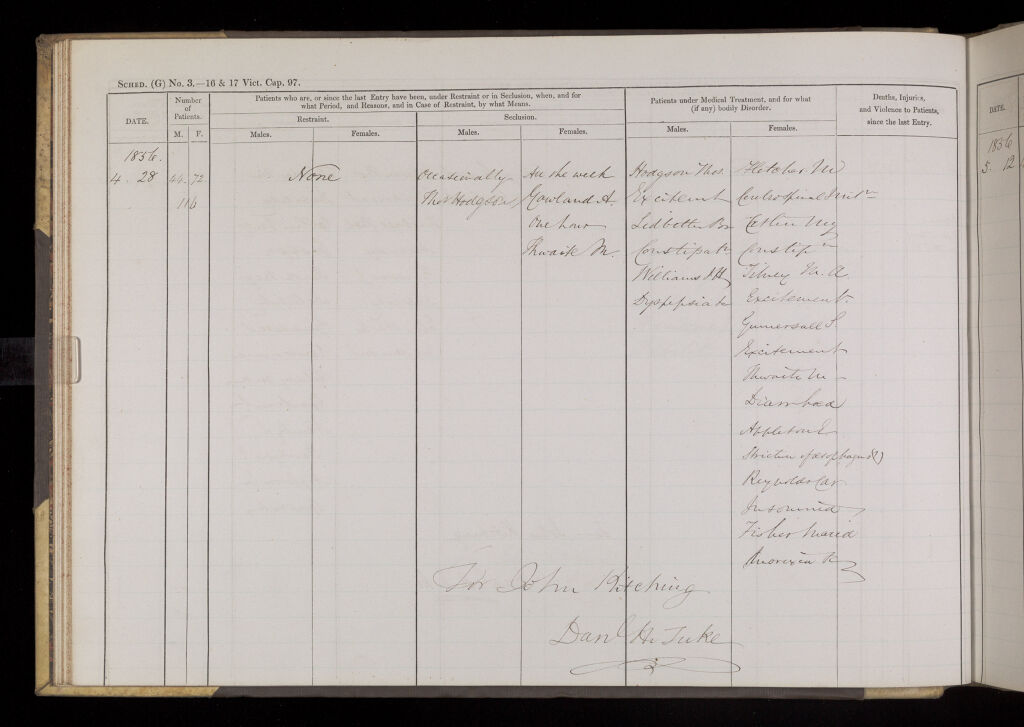 SCHED. (G) No. 3.—16 & 17 Vict. Cap. 97.
DATE.
Number of Patients.
M. F.
Patients who are, or since the last Entry have been, under Restraint or in Seclusion, when, and for
what Period, and Reasons, and in Case of Restraint, by what Means.
Restraint.
Males. Females.
Seclusion.
Males. Females.
Patients under Medical Treatment, and for what
(if any) bodily Disorder.
Males. Females.
Deaths, Injuries,
and Violence to Patients,
since the last Entry.
1856.
4. 28 44. 72
116
None
Occasionally
Thos Hodgson
All the week
Gowland A.
One hour
Thwaite M.
Hodgson Thos.
Excitement
Ledbetter
Constipatn
Williams J H
Dyspepsia
Fletcher M
Centrospinal Irritn
Constipn
Tilney M. A.
Excitement
Gumersall S.
Excitement
Thwaite M
Diarrhoea
Appleton E
Stricture of œsophagus (?)
Reynolds Car
Insomnia
Fisher Maria
Anorexia
For John Kitching
Danl H. Tuke
DATE.
1856
5. 12